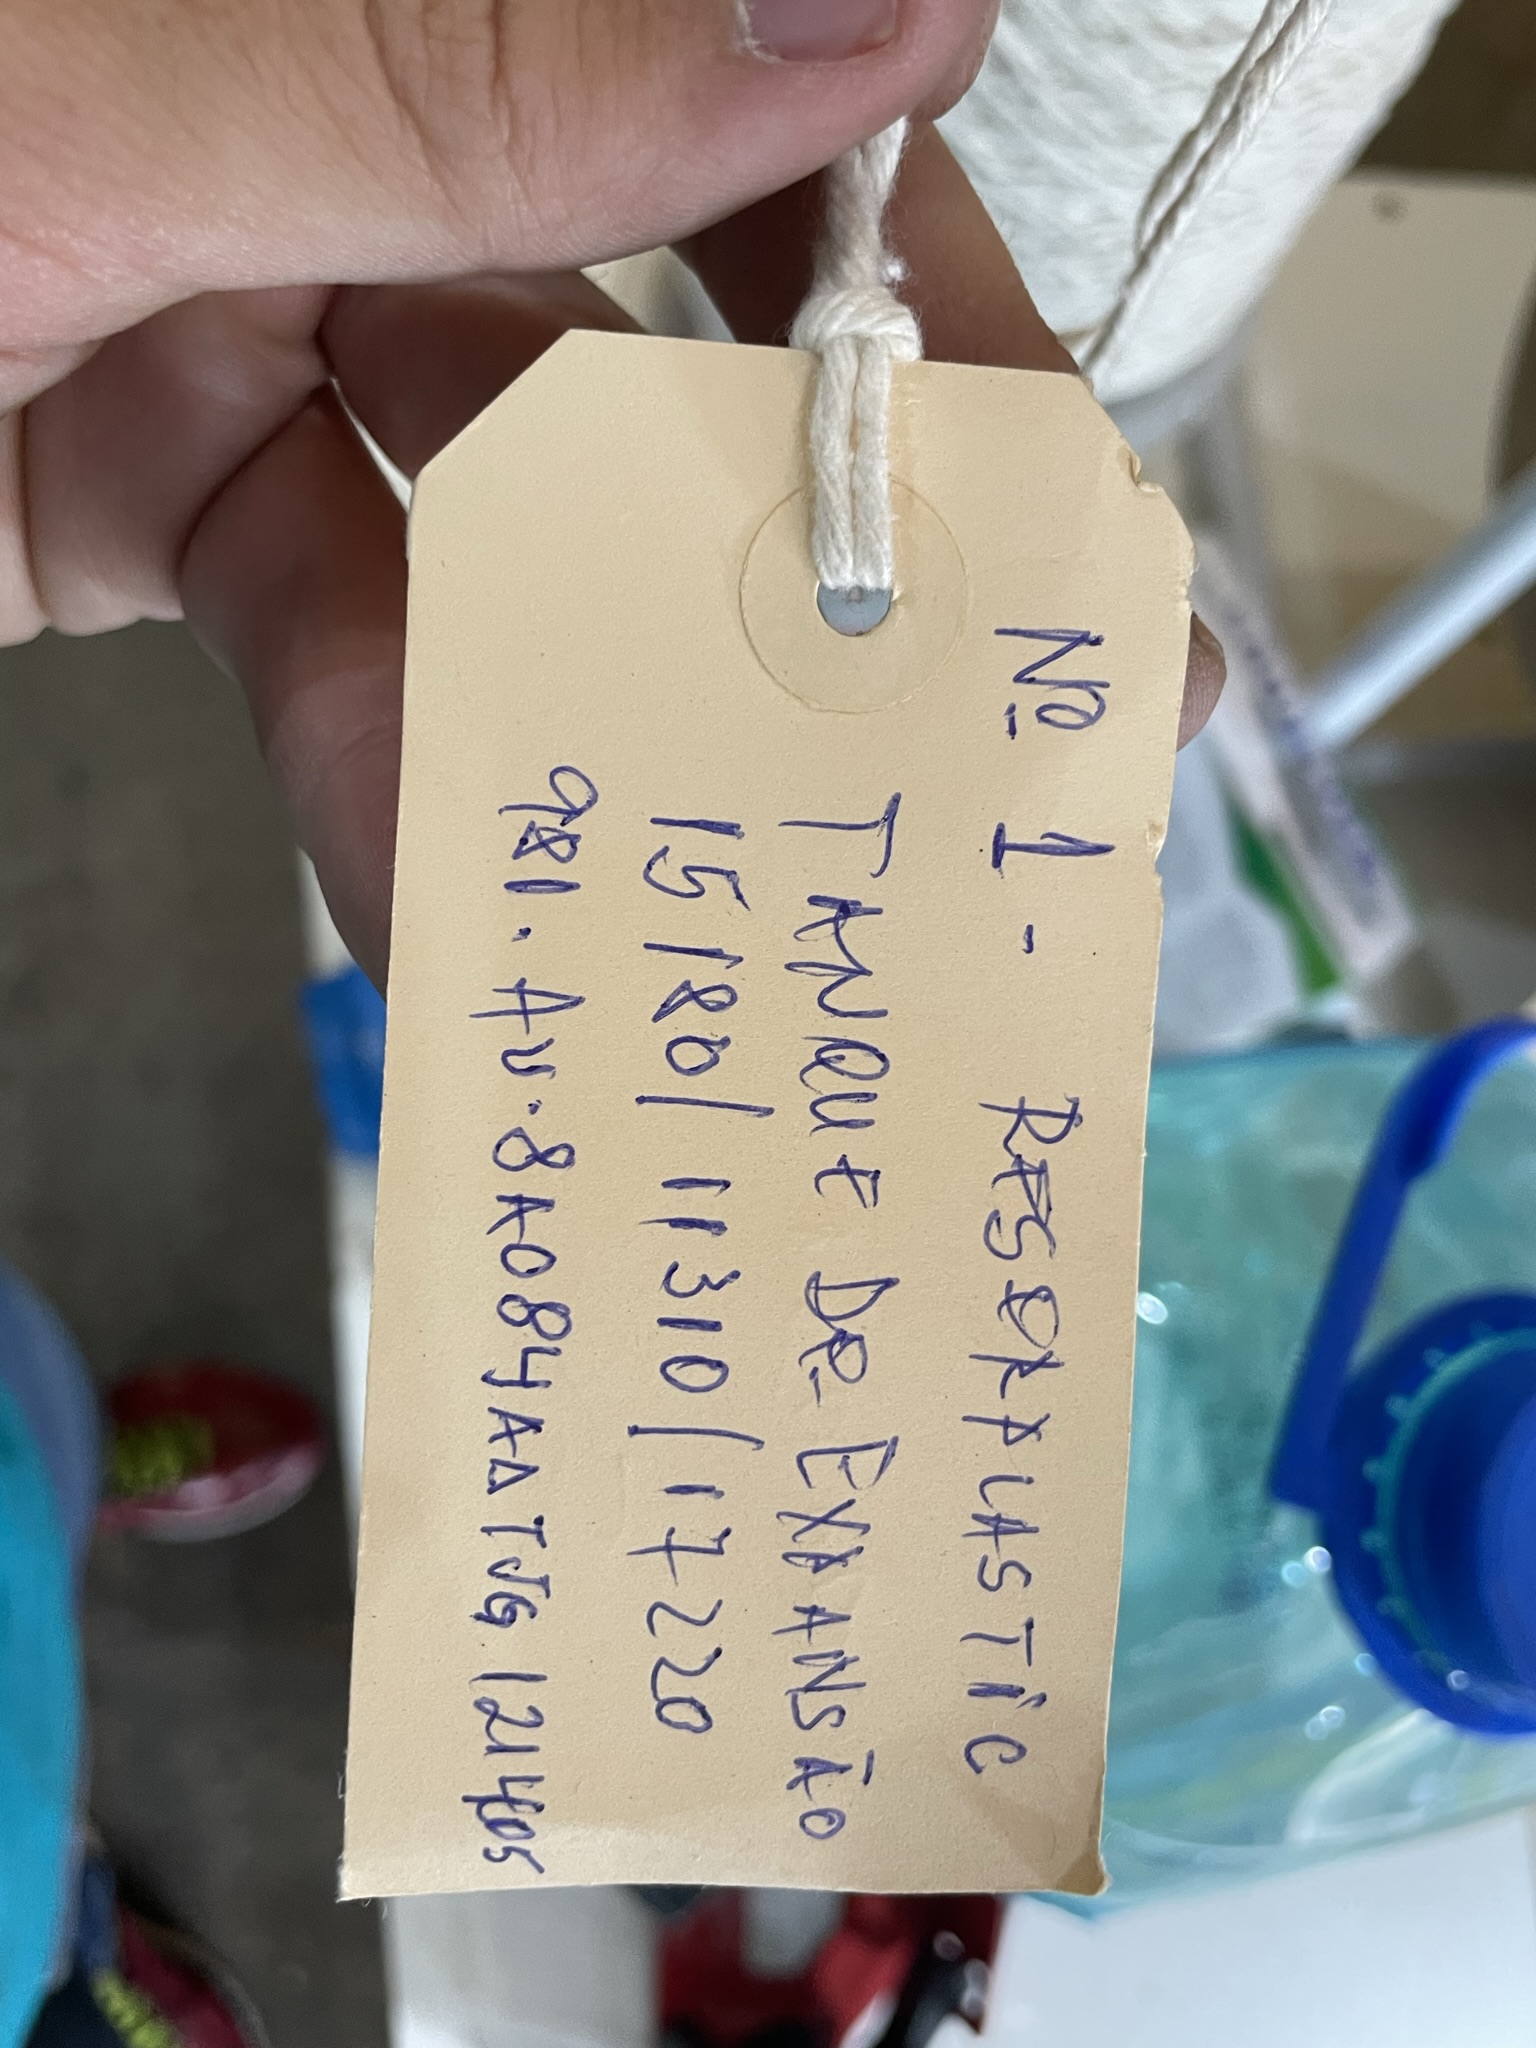 Nº 1 - RESERPLASTIC
TANQUE DE EXPANSÃO
15/80/11310/17220
981. AV. 8A084AA TJG 121405